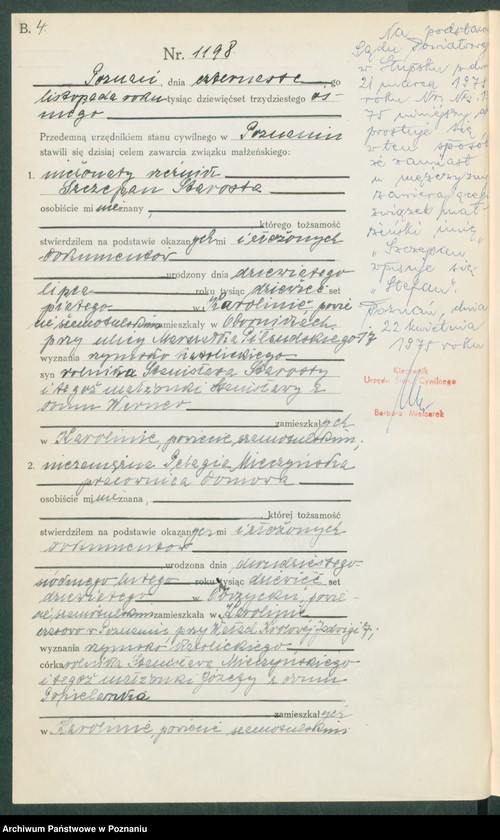 B. 4.
Nr. 1198
Poznań, dnia czternastego
listopada roku tysiąc dziewięćset trzydziestego ós-
mego
Przedemną urzędnikiem stanu cywilnego w Poznaniu
stawili się dzisiaj celem zawarcia związku małżeńskiego:
1. nieżonaty
Szczepan Starosta
osobiście mi nieznany,
którego tożsamość
stwierdziłem na podstawie okazanych mi i złożonych
dokumentów
urodzony dnia dziewiątego
lipca roku tysiąc dziewięć set
piątego w Karolinie, powie-
cie szamotulskim zamieszkały w Obornikach,
przy ulicy Marszałka Piłsudskiego
wyznania rzymsko katolickiego
syn rolnika Stanisława Starosty
i tegoż małżonki Stanisławy z
domu Werner
zamieszkałych
w Karolinie, powiecie szamotulskim;
2. niezamężna Pelagia Mieczyńska
pracownica domowa
osobiście mi nieznana,
której tożsamość
stwierdziłem na podstawie okazanych mi i złożonych
dokumentów
urodzona dnia dwudziestego
siódmego lutego roku tysiąc dziewięć set
dziewiątego w Obrzycku, powie-
cie szamotulskim zamieszkała w Karolinie
czasowo w Poznaniu, przy Królowej Jadwigi
wyznania rzymsko katolickiego
córka rolnika Stanisława Mieczyńskiego
i tegoż małżonki Józefy z domu
zamieszkałych
w Karolinie, powiecie szamotulskim
Na podstawie
Sądu Powiatowego
w Słupsku z dnia
21 marca 1975
roku
75 niniejszy
prostuje się
w ten sposób
że zamiast
związek mał-
żeński imię
"Szczepan
wpisuje się
"Stefan".
Poznań, dnia
22 kwietnia
1975 roku
Kierownik
Urzędu Stanu Cywilnego
Barbara
Archiwum Państwowe w Poznaniu